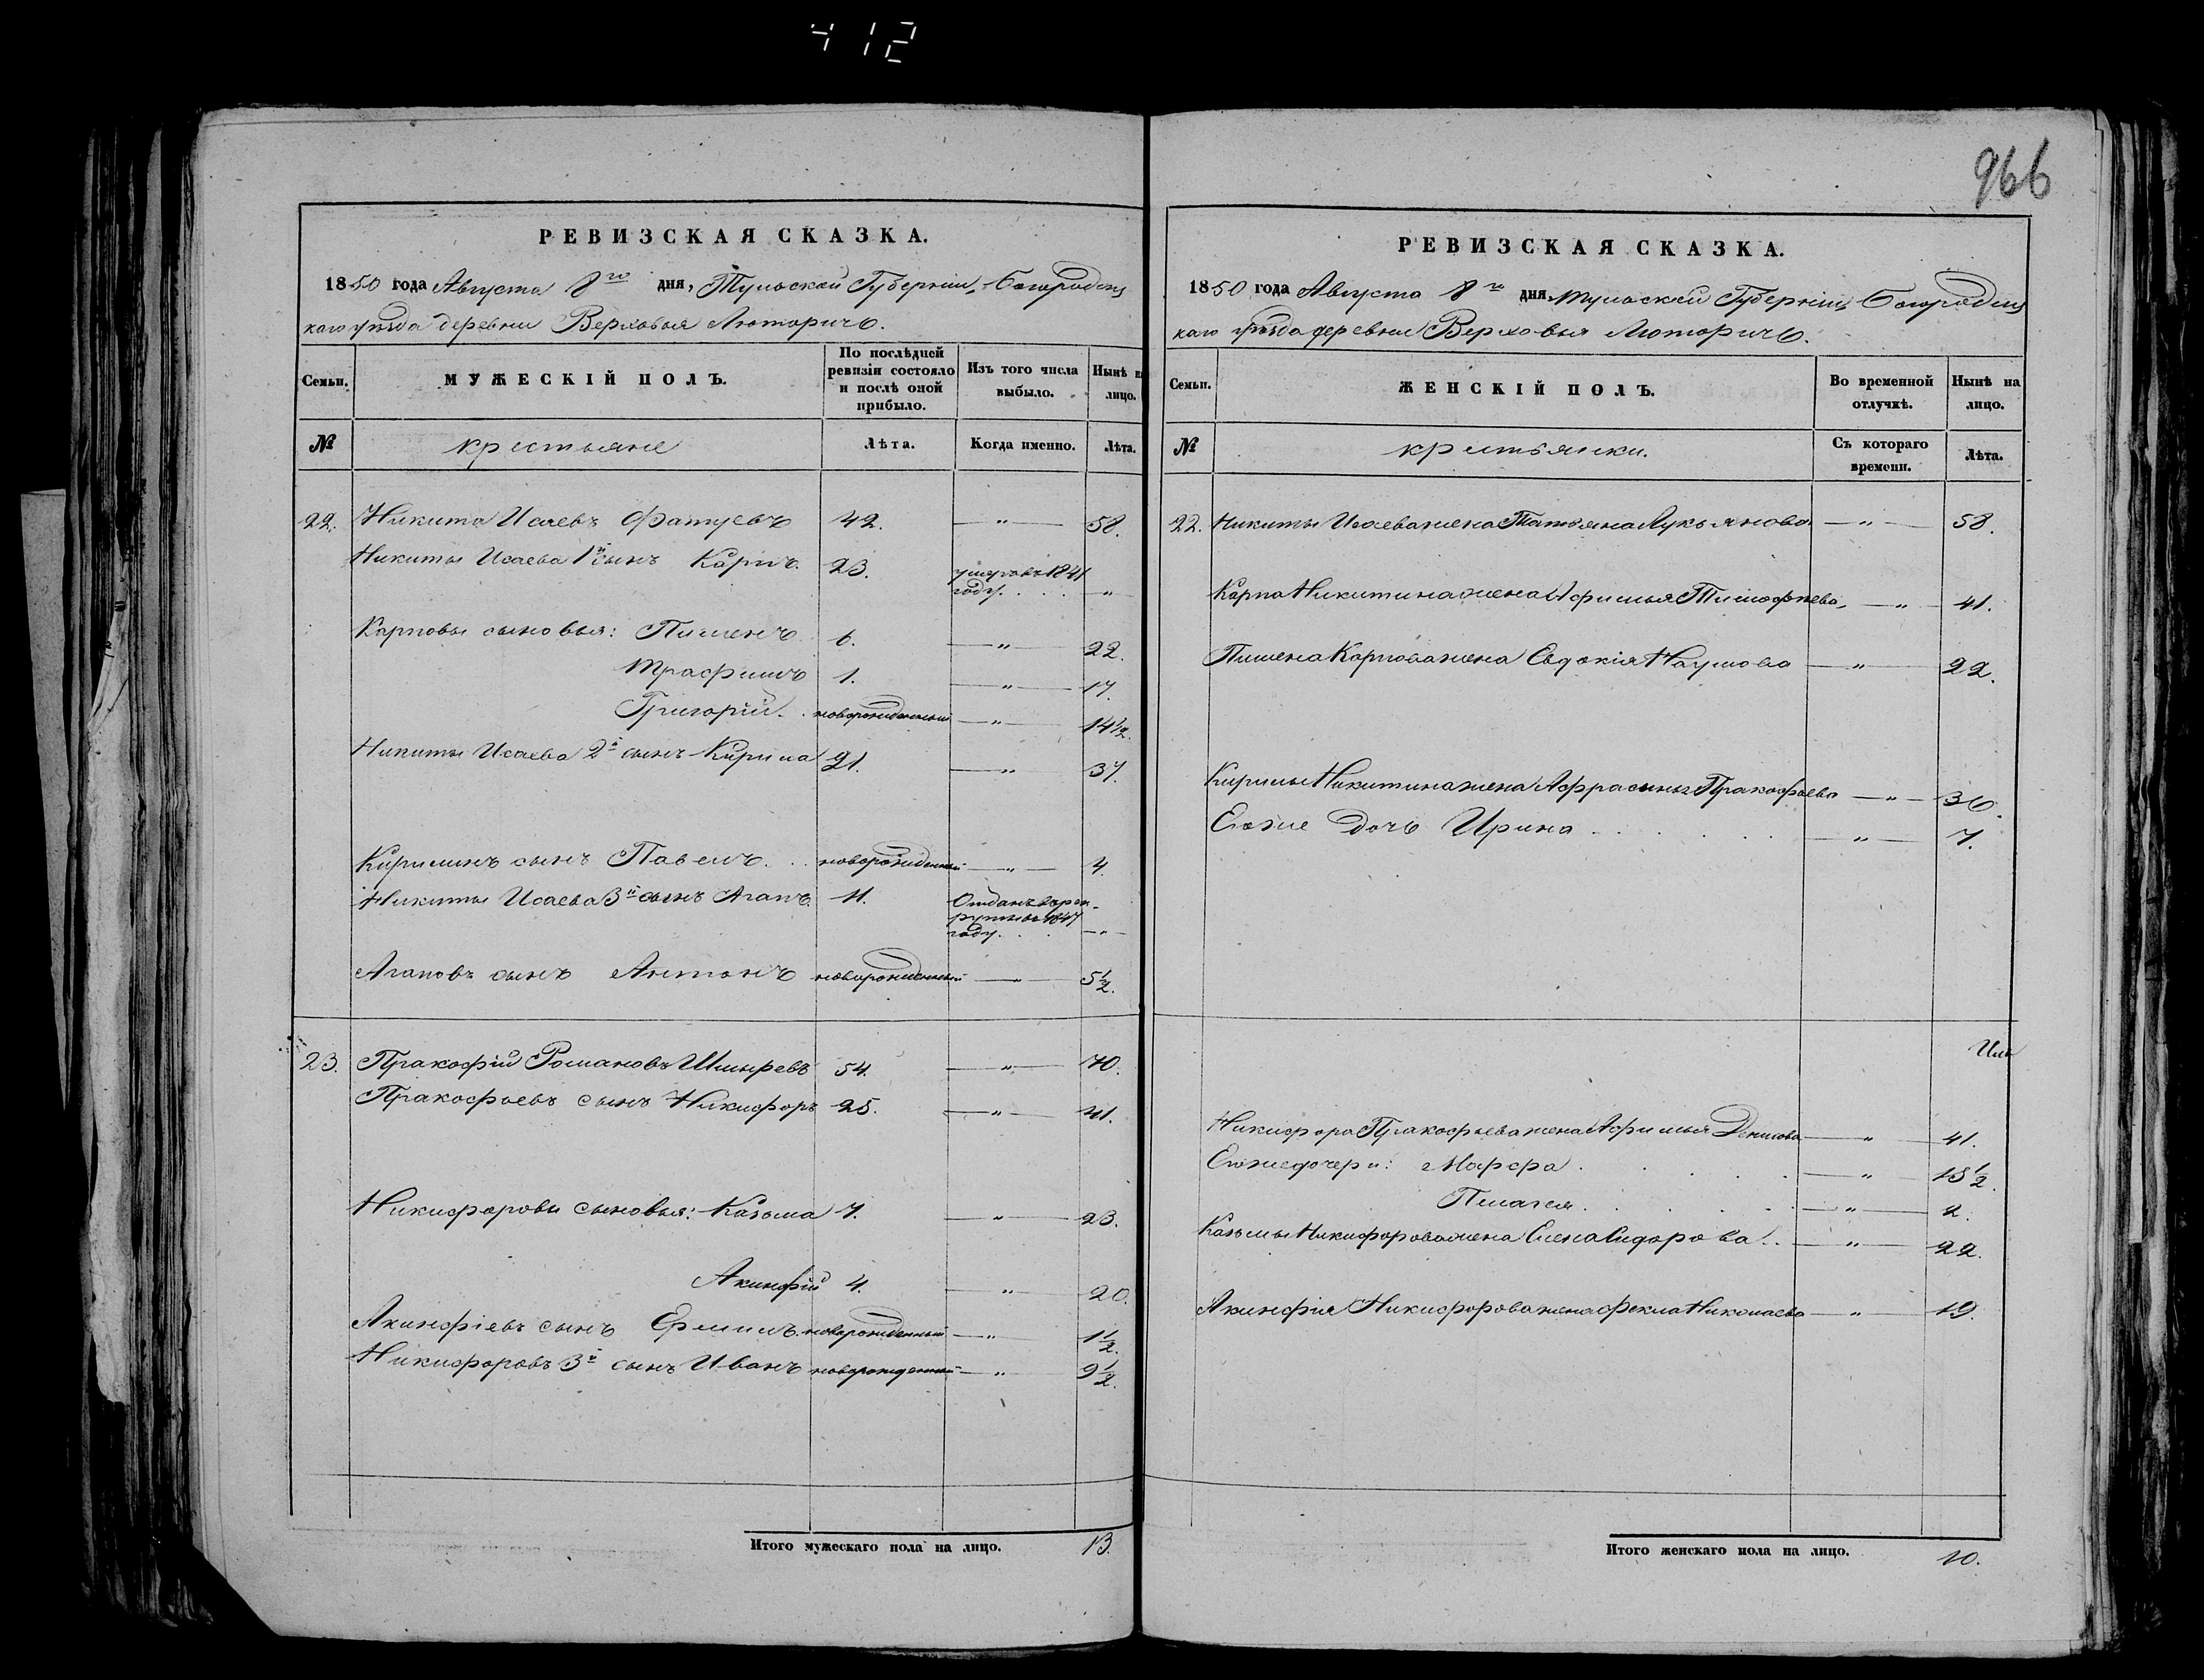 412
966
РЕВИЗСКАЯ СКАЗКА.
1850 года Августа 8го дня, Тульской Губерніи, Богородиц
каго уѣзда деревни Верховья Люторичь.
Семьи. МУЖЕСКІЙ ПОЛЪ. По послѣдней ревизіи состояло и послѣ оной прибыло. Изъ того числа выбыло. Нынѣ на лицо.
№ крестьяне Лѣта. Когда именно. Лѣта.
22. Никита Исаевъ 42. — „ — 58.
Никиты Исаева 1й сынъ Карпъ. 23. умеръ въ 1841
году. . . . „
Карповы сыновья: Пименъ 6. — „ — 22.
Трафимъ 1. — „ — 17.
Григорій. . новорожденный — „ — 14 1/2.
Никиты Исаева 2й сынъ Кирила 21. — „ — 37.
Кирилинъ сынъ Павелъ. . . новорожденный — „ — 4.
Никиты Исаева 3й сынъ Агапъ. 11. Отданъ въ рек-
руты въ 1847
году. . . . — „ —
Агаповъ сынъ Антонъ новорожденный — „ — 5 1/2.
23. Пракофій Романовъ Шмыревъ 54. — „ — 70.
Пракофьевъ сынъ Никифоръ 25. — „ — 41.
Никифоровы сыновья: Казьма 7. — „ — 23.
Акинфій 4. — „ — 20.
Акинфіевъ сынъ Ермилъ. новорожденный — „ — 1 1/2.
Никифоровъ 3й сынъ Иванъ новорожденный — „ — 9 1/2.
Итого мужескаго пола на лицо. 13.
РЕВИЗСКАЯ СКАЗКА.
1850 года Августа 8го дня, Тульской Губерніи, Богородиц
каго уѣзда деревни Верховья Люторичь.
Семьи. ЖЕНСКІЙ ПОЛЪ. Во временной отлучкѣ. Нынѣ на лицо.
№ крестьянки. Съ котораго времени. Лѣта.
22. Никиты Исаева жена Татьяна Лукьянова — „ — 58.
Карпа Никитина жена Афимья Тимофѣева, — „ — 41.
Пимена Карпова жена Евдокія Наумова — „ — 22.
Кирилы Никитина жена Афрасинья Пракофьева — „ — 36.
Егоже дочь Ирина . . . . . — „ — 7.
Никифора Пракофьева жена Афимья Денисова — „ — 41.
Егоже дочери: Марфа . . . . — „ — 15 1/2.
Пелагея. . . . . — „ — 2.
Казьмы Никифорова жена Елена Сидорова. . — „ — 22.
Акинфія Никифорова жена Фекла Николаева — „ — 19.
Итого женскаго пола на лицо. 10.